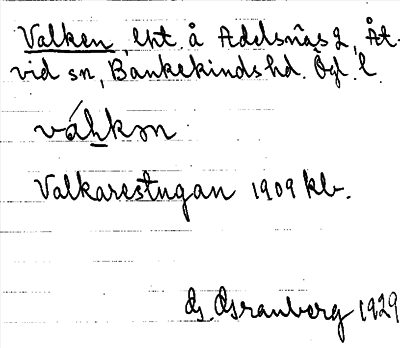 Valken, lht. å Adelsnäs 2, Åt-
vid sn, Bankekinds hd. Ögl. l.
váhkən
Valkarestugan 1909 kb.
G. Granberg 1929